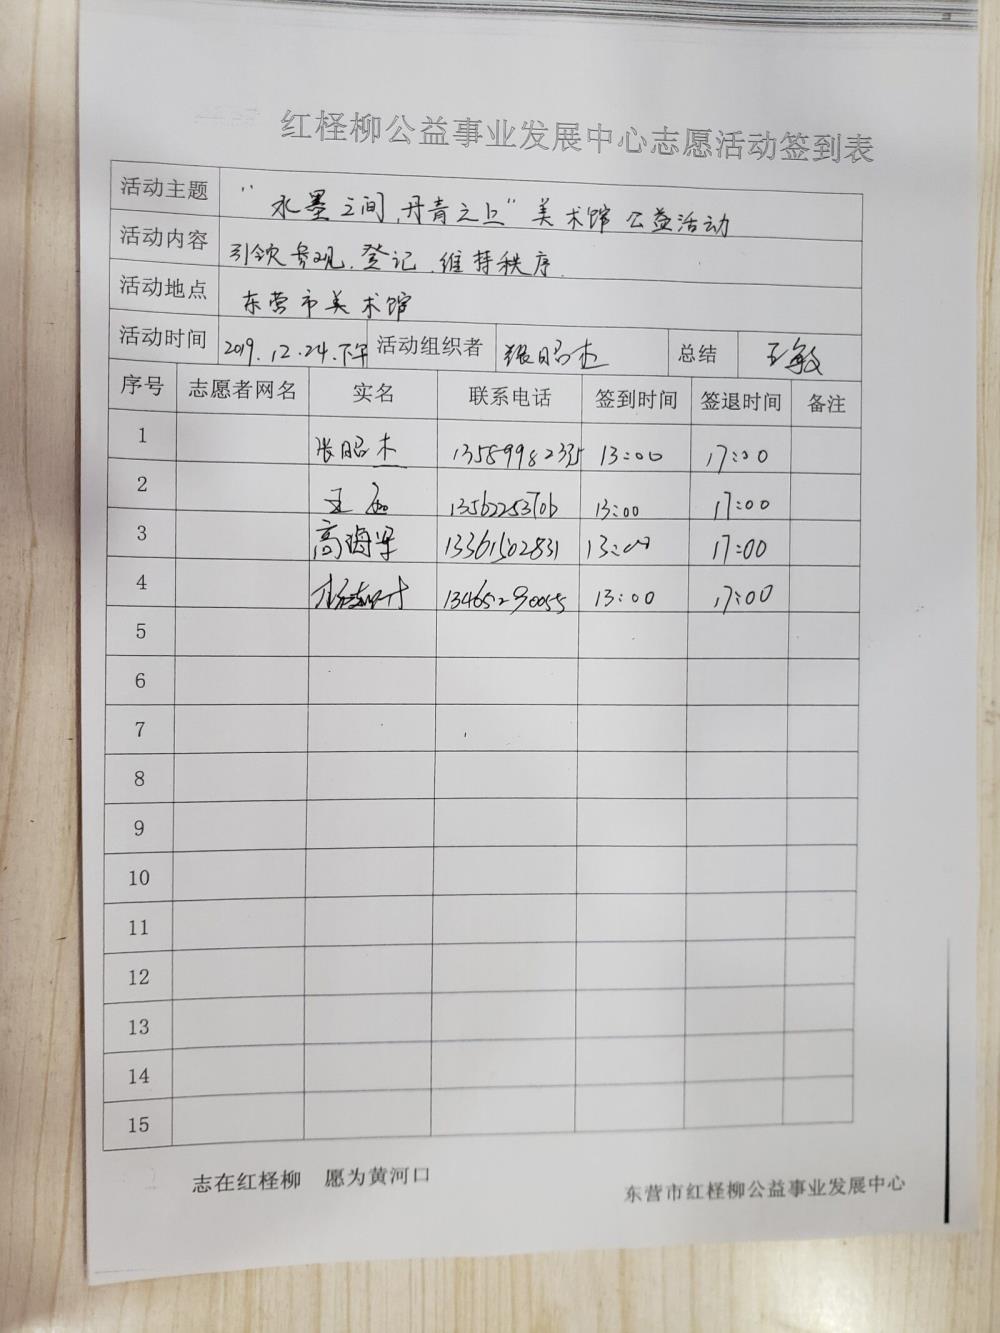 红柽柳公益事业发展中心志愿活动签到表
活动主题 “水墨之间,丹青之上”美术馆公益活动
活动内容 引领参观、登记、维持秩序.
活动地点 东营市美术馆
活动时间 2019.12.24.下午 活动组织者 张昭杰 总结 王敏
序号 志愿者网名 实名 联系电话 签到时间 签退时间 备注
1 张昭杰 13589982335 13:00 17:00
2 王 13562253706 13:00 17:00
3 高海军 13361502831 13:00 17:00
4 13465290055 13:00 17:00
5
6
7
8
9
10
11
12
13
14
15
志在红柽柳 愿为黄河口
东营市红柽柳公益事业发展中心